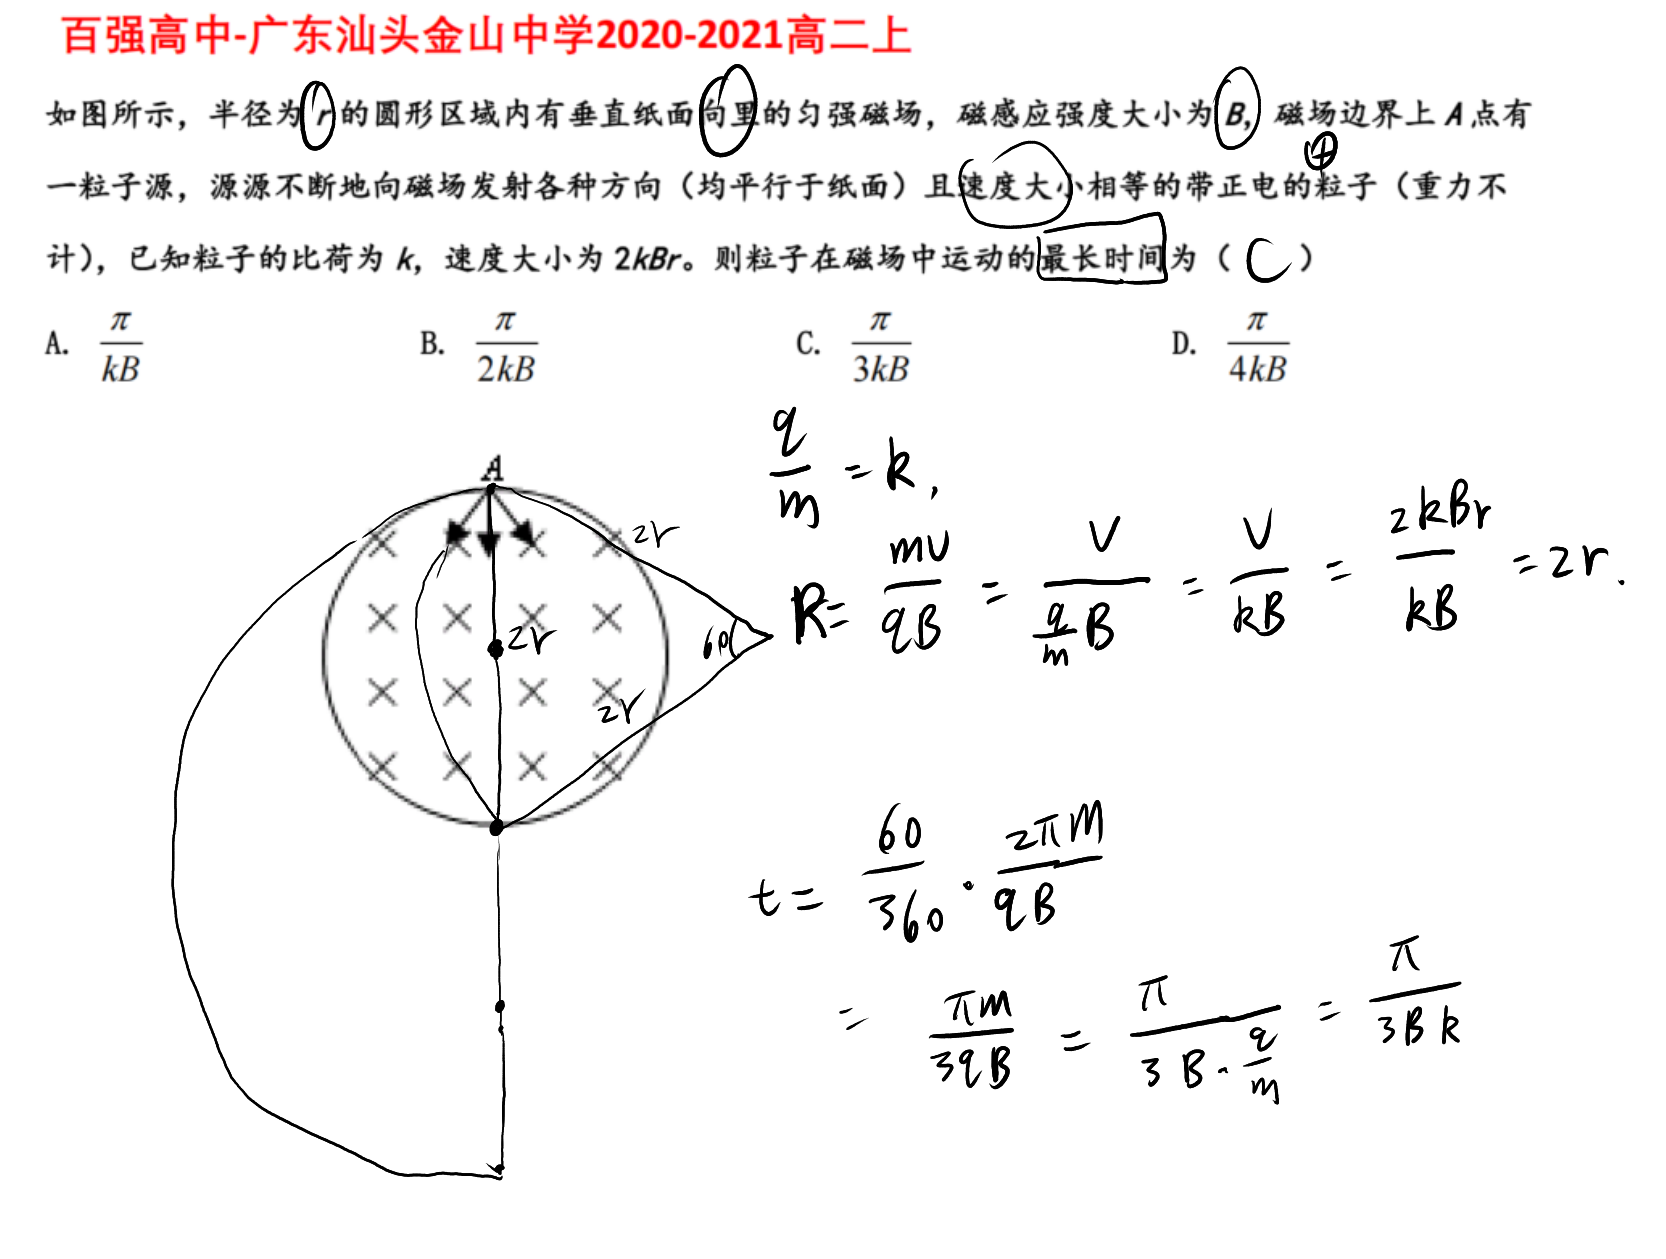 百强高中-广东汕头金山中学2020-2021高二上
如图所示，半径为 r 的圆形区域内有垂直纸面向里的匀强磁场，磁感应强度大小为 B，磁场边界上 A 点有
一粒子源，源源不断地向磁场发射各种方向（均平行于纸面）且速度大小相等的带正电的粒子（重力不
计），已知粒子的比荷为 k，速度大小为 2kBr。则粒子在磁场中运动的最长时间为（ C ）
A. π/kB B. π/2kB C. π/3kB D. π/4kB
A
2r
2r
60
2r
q/m = k,
R = mv/qB = v/(q/m B) = v/kB = 2kBr/kB = 2r.
t = 60/360 · 2πm/qB
= πm/3qB = π/(3B·q/m) = π/3Bk